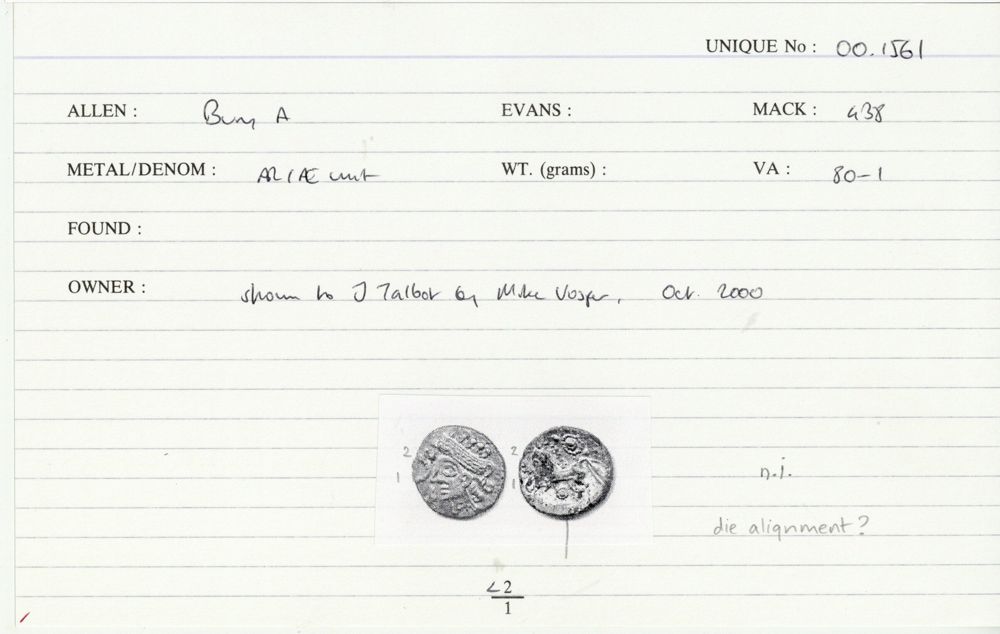 UNIQUE No : 00.1561
ALLEN : Bury A EVANS : MACK : 438
METAL/DENOM : AR/Æ unit WT. (grams) : VA : 80-1
FOUND :
OWNER : shown to J Talbot by Mike Vosper, Oct. 2000
2 2
1 1
n.i.
die alignment?
<2
1